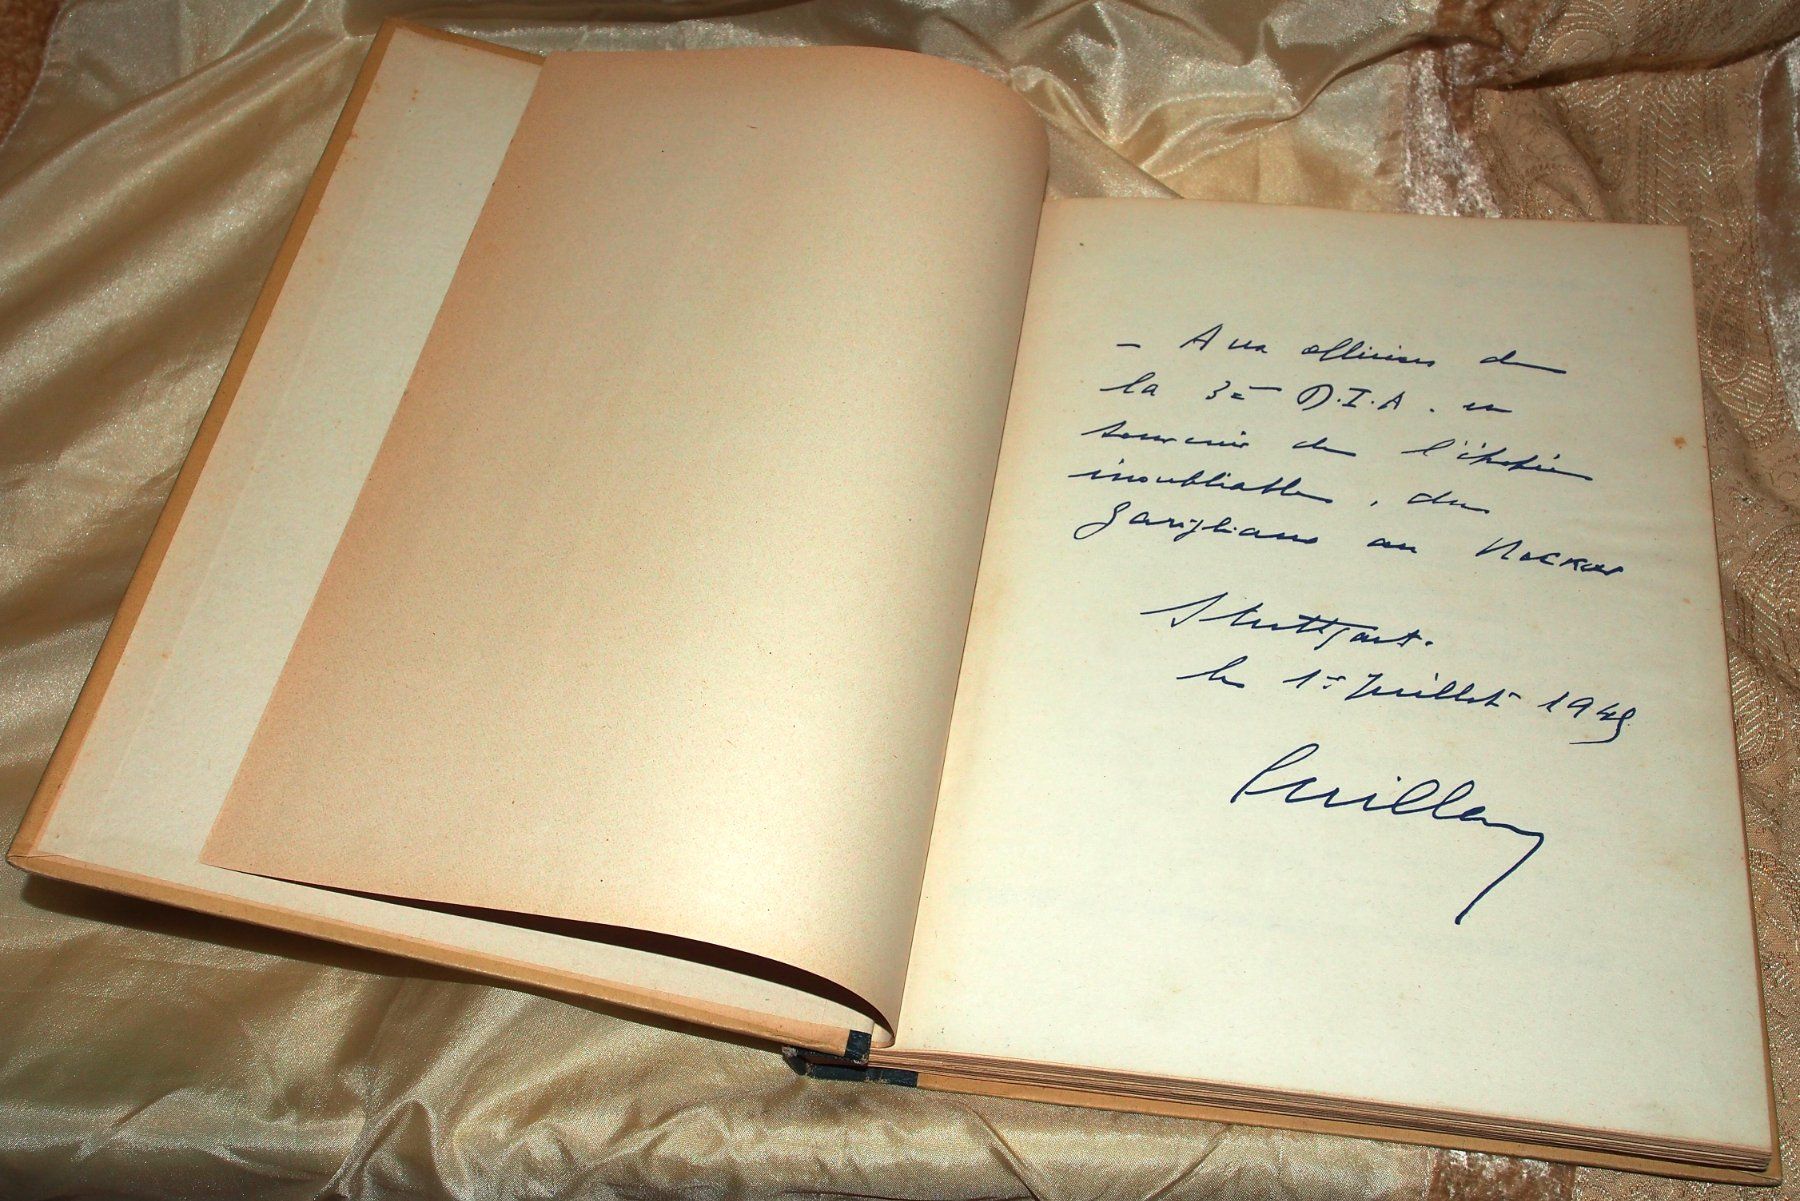 – Aux officiers de
la 3e D.I.A. en
souvenir de l'épopée
inoubliable, du
Garigliano au Neckar
Stuttgart.
le 1er Juillet 1945
Guillaume